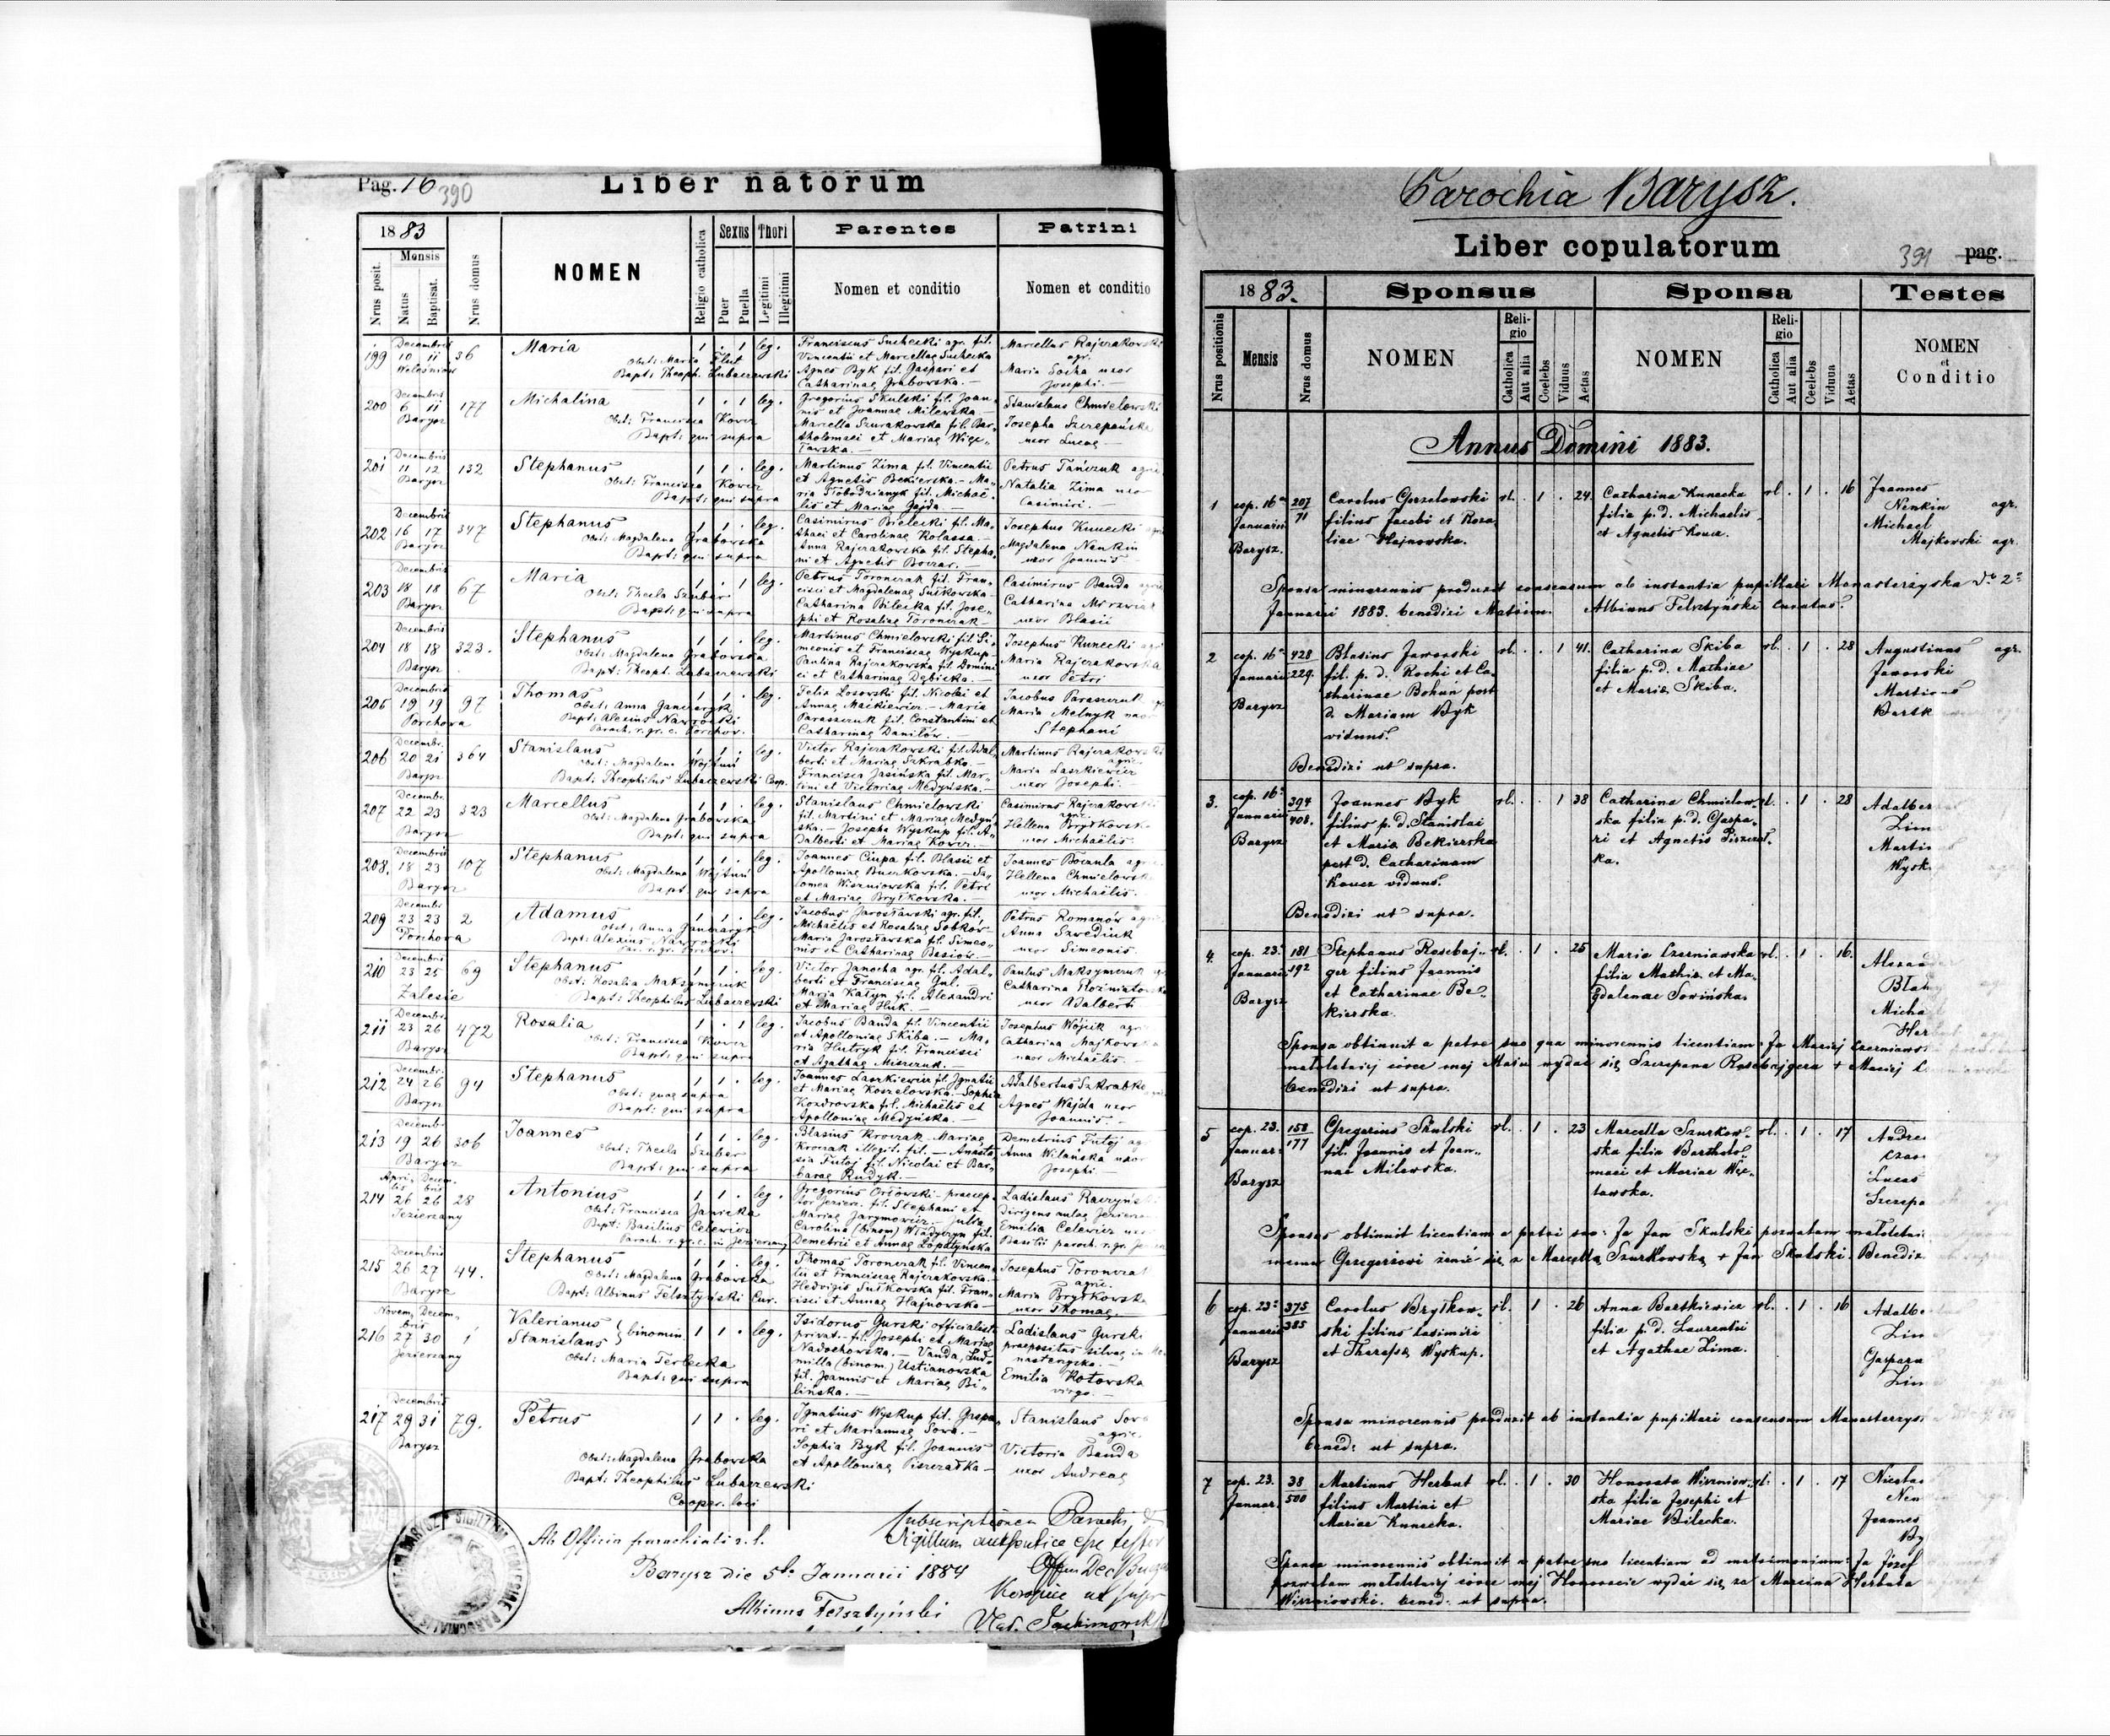 Pag. 16 390
Liber natorum
1883
Mensis
Nrus posit.
Natus
Baptisat.
Nrus domus
NOMEN
Religio catholica
Sexus
Puer
Puella
Thori
Legitimi
Illegitimi
Parentes
Nomen et conditio
Patrini
Nomen et conditio
199 Decembris 10 11 36
Maria
Obst: Maria Flut
Bapt: Theoph. Lubaczewski
1 . 1 leg.
Franciscus Suchecki agr. fil.
Vincentii et Marcellae Suchecka
Agnes Byk fil. Gaspari et
Catharinae Grabowska.—
Marcellus Rajczakowski
agr.
Maria Socha uxor
Josephi.—
200 Decembris 6 11 Barysz 177
Michalina
Obst: Francisca Kowcz
Bapt: qui supra
1 . 1 leg.
Gregorius Skulski fil. Joan-
nis et Joannae Milewska.—
Marcella Szurakowska fil. Bar-
tholomaei et Mariae Więc-
ławska.—
Stanislaus Chmielowski
Josepha Szczepańska
uxor Lucae—
201 Decembris 11 12 Barysz 132
Stephanus
Obst: Francisca Kowcz
Bapt: qui supra
1 1 . leg.
Martinus Zima fil. Vincentii
et Agnetis Bekierska.— Ma-
ria Słobodzianyk fil. Michaë-
lis et Mariae Gajda.—
Petrus Tańczuk
Natalia Zima
Casimiri.—
202 Decembris 16 17 Barysz 347
Stephanus
Obst: Magdalena Grabowska
Bapt: qui supra
1 1 . leg.
Casimirus Bielecki fil. Ma-
thaei et Carolinae Kolassa.—
Anna Rajczakowska fil. Stepha-
ni et Agnetis Boczar.—
Josephus Kunecki
Magdalena Nenkin
uxor Joannis
203 Decembris 18 18 Barysz 67
Maria
Obst: Thecla Szuber
Bapt: qui supra
1 . 1 leg.
Petrus Toronczak fil. Fran-
cisci et Magdalenae Sutkowska—
Catharina Bilecka fil. Jose-
phi et Rosaliae Toronczak—
Casimirus Banda
Catharina
uxor Blasii
204 Decembris 18 18 Barysz 323.
Stephanus
Obst: Magdalena Grabowska
Bapt: Theoph. Lubaczewski
1 1 . leg.
Martinus Chmielowski fil. Si-
meonis et Franciscae Wyskup—
Paulina Rajczakowska fil. Domini-
ci et Catharinae Dębicka.—
Josephus Kunecki
Maria Rajczakowska
uxor Petri
205 Decembris 19 19 Porchowa 97
Thomas
Obst: Anna Janczaryk
Bapt: Alexius Nawrocki
Paroch. r. gr. c. Porchov.
1 1 . leg.
Felix Losowski fil. Nicolai et
Annae Maikiewicz— Maria
Parasczuk fil. Constantini et
Catharinae Danilów.
Jacobus Parasczuk
Maria Melnyk
Stephani
206 Decembr. 20 21 Barysz 364
Stanislaus
Obst: Magdalena Wojtuń
Bapt: Theophilus Lubaczewski Coop.
1 1 . leg.
Victor Rajczakowski fil. Adal-
berti et Mariae Szkrabko.—
Francisca Jasińska fil. Mar-
tini et Victoriae Medyńska.—
Martinus Rajczakowski
agric.
Maria Laszkiewicz
uxor Josephi.—
207 Decembr. 22 23 Barysz 323
Marcellus
Obst: Magdalena Grabowska
Bapt: qui supra
1 1 . leg.
Stanislaus Chmielowski
fil. Martini et Mariae Medyń-
ska.— Josepha Wyskup fil. A-
dalberti et Mariae Kowcz.—
Casimirus Rajczakowski
agric.
Hellena Brytkowska
uxor Michaëlis.
208. Decembris 18 23 Barysz 107
Stephanus
Obst: Magdalena Wojtuń
Bapt: qui supra
1 1 . leg.
Joannes Ciupa fil. Blasii et
Apolloniae Buczkowska.— Sa-
lomea Wiszniowska fil. Petri
et Mariae Brytkowska.—
Joannes Boczula
Hellena Chmielowska
uxor Michaëlis.
209 Decembr. 23 23 Porchova 2
Adamus
Obst: Anna Janczaryk
Bapt: Alexius Nawrocki
Par. r. gr. Porchov.
1 1 . leg.
Jacobus Jarosławski agr. fil.
Michaëlis et Rosaliae Sobków
Maria Jarosławska fil. Simeo-
nis et Catharinae Basiów.—
Petrus Romanów
Anna Szwediuk
uxor Simeonis.
210 Decembris 23 25 Zalesie 69
Stephanus
Obst: Rosalia Maksymczuk
Bapt: Theophilus Lubaczewski
1 1 . leg.
Victor Janocha agr. fil. Adal-
berti et Franciscae Gul.—
Maria Kałyn fil. Alexandri
et Mariae Huk.—
Paulus Maksymczuk
Catharina Rozniatowska
uxor Adalberti
211 Decembris 23 26 Barysz 472
Rosalia
Obst: Francisca Kowcz
Bapt: qui supra
1 . 1 leg.
Jacobus Banda fil. Vincentii
et Apolloniae Skiba.— Ma-
ria Hutryk fil. Francisci
et Agathae Misczuk.—
Josephus Wójcik
Catharina Majkowska
uxor Michaëlis.—
212 Decembr. 24 26 Barysz 94
Stephanus
Obst: quae supra
Bapt: qui supra
1 1 . leg.
Joannes Laszkiewicz fil. Ignatii
et Mariae Koszelowska.— Sophia
Kozdrowska fil. Michaëlis et
Apolloniae Medyńska.—
Adalbertus Szkrabko
Agnes Wajda uxor
Joannis.—
213 Decemb. 19 26 Barysz 306
Joannes
Obst: Thecla Szuber
Bapt: qui supra
1 1 . leg.
Blasius Krowzak Mariae
Krowzak illegit. fil.— Anasta-
sia Futoj fil. Nicolai et Bar-
barae Rudyk.—
Demetrius Futoj
Anna Wilańska uxor
Josephi.—
214 Aprilis Decembris 26 26 Jezierzany 28
Antonius
Obst: Francisca Janicka
Bapt: Basilius Celewicz
Paroch. r. gr. c. in Jezierzany
1 1 . leg.
Gregorius Orłowski— praecep-
tor Jezierz. fil. Stephani et
Mariae Jarymowicz.— Julia
Carolina (binom) Władyczyn fil.
Demetrii et Annae Łopatyńska
Ladislaus Raczyński
Dirigens aulae
Emilia Celewicz
Basilii paroch. r. gr.
215 Decembris 26 27 Barysz 44.
Stephanus
Obst: Magdalena Grabowska
Bapt: Albinus Felsztyński Cur.
1 1 . leg.
Thomas Toronczak fil. Vincen-
tii et Franciscae Rajczakowska.—
Hedvigis Sutkowska fil. Fran-
cisci et Annae Hajnowska—
Josephus Toronczak
agric.
Maria Brytkowska
uxor Thomae
216 Novem. Decembris 27 30 Jezierzany 1
Valerianus
Stanislaus } binomin.
Obst: Maria Terlecka
Bapt: qui supra
1 1 . leg.
Isidorus Gurski officialista
privat.— fil. Josephi et Mariae
Nadochowska.— Vanda, Lud-
milla (binom) Ustianowska
fil. Joannis et Mariae Bi-
lińska.—
Ladislaus Gurski
praepositus silvae in
nasterzyska.—
Emilia Kotowska
virgo.—
217 Decembris 29 31 Barysz 79.
Petrus
Obst: Magdalena Grabowska
Bapt: Theophilus Lubaczewski
Cooper. loci
1 1 . leg.
Ignatius Wyskup fil. Gaspa-
ri et Mariannae Sowa.—
Sophia Byk fil. Joannis
et Apolloniae Piszczatka—
Stanislaus
agric.
Victoria Banda
uxor Andreae
Ab Officio parochiali r. l.
Barysz die 5ta Januarii 1884
Albinus Felsztyński
Subscriptionem Parochi
Sigillum authentice esse
Parochia Barysz.
Liber copulatorum
391 pag.
1883.
Nrus positionis
Mensis
Nrus domus
Sponsus
NOMEN
Religio
Catholica
Aut alia
Coelebs
Viduus
Aetas
Sponsa
NOMEN
Religio
Catholica
Aut alia
Coelebs
Vidua
Aetas
Testes
NOMEN
et
Conditio
Annus Domini 1883.
1 cop. 16a Januarii Barysz. 207 71
Carolus Grzelowski rl. . 1 . 24.
filius Jacobi et Rosa-
liae Hajnowska.
Catharina Kunecka rl . 1 . 16
filia p. d. Michaelis
et Agnetis Kowcz.
Joannes
Nenkin agr.
Michael
Majkowski agr.
Sponsa minorennis produxit consensum ab instantia pupillari Monasterzyska dto 2a
Januarii 1883. benedixi Matrim. Albinus Felsztyński Curatus.
2 cop. 16a Januarii Barysz 428 229.
Blasius Jaworski rl. . . 1 41.
fil. p. d. Rochi et Ca-
tharinae Bohun post
d. Mariam Byk
viduus.
Catharina Skiba rl. . 1 . 28
filia p. d. Mathiae
et Mariae Skiba.
Augustinus agr.
Jaworski
Martinus
Bartk
Benedixi ut supra.
3. cop. 16a Januarii Barysz 394 408.
Joannes Byk rl. . . 1 38
filius p. d. Stanislai
et Mariae Bekierska
post d. Catharinam
Kowcz viduus.
Catharina Chmielow- rl. . 1 . 28
ska filia p. d. Gaspa-
ri et Agnetis Piszczat-
ka.
Adalber
Zima
Martin
Wysk
Benedixi ut supra.
4. cop. 23. Januarii Barysz 181 192
Stephanus Rosebaj- rl. . 1 . 25
ger filius Joannis
et Catharinae Be-
kierska.
Maria Czerniawska rl. . 1 . 16.
filia Mathiae et Ma-
gdalenae Sowińska.
Alexander
Michael
Her
Sponsa obtinuit a patre suo qua minorennis licentiam: Ja Maciej Czerniawski
małoletniej córce mej Maryi wydać się Szczepana Rosebajgera + Maciej
benedixi ut supra.
5 cop. 23. Januar: Barysz 158 177
Gregorius Skulski rl. . 1 . 23
fil. Joannis et Joan-
nae Milewska.
Marcella Szurkow- rl. . 1 . 17
ska filia Bartholo-
maei et Mariae Więc-
ławska.
Andre
Lucas
Szczepa
Sponsus obtinuit licentiam a patri suo: Ja Jan Skulski pozwalam małoletni
memu Grzegorzowi żenić się z Marcellą Szurkowską + Jan Skulski. Benedix
6 cop. 23a Januarii Barysz 375 385
Carolus Brytkow- rl. . 1 . 26
ski filius Casimiri
et Theresae Wyskup.
Anna Bartkiewicz rl. . 1 . 16
filia p. d. Laurentii
et Agathae Zima.
Adalbe
Zim
Gaspara
Zim
Sponsa minorennis produxit ab instantia pupillari consensum Monasterzys
bened: ut supra.
7 cop. 23. Januar. 38 500
Martinus Herbut rl. . 1 . 30
filius Martini et
Mariae Kunecka.
Honorata Wiszniow- rl. . 1 . 17
ska filia Josephi et
Mariae Bilecka.
Nicolau
Nen
Joannes
By
Sponsa minorennis obtinuit a patre suo licentiam ad matrimonium: Ja Józef
pozwalam małoletniej córce mej Honoracie wydać się za Marcina Herbuta
Wiszniowski. bened: ut supra.